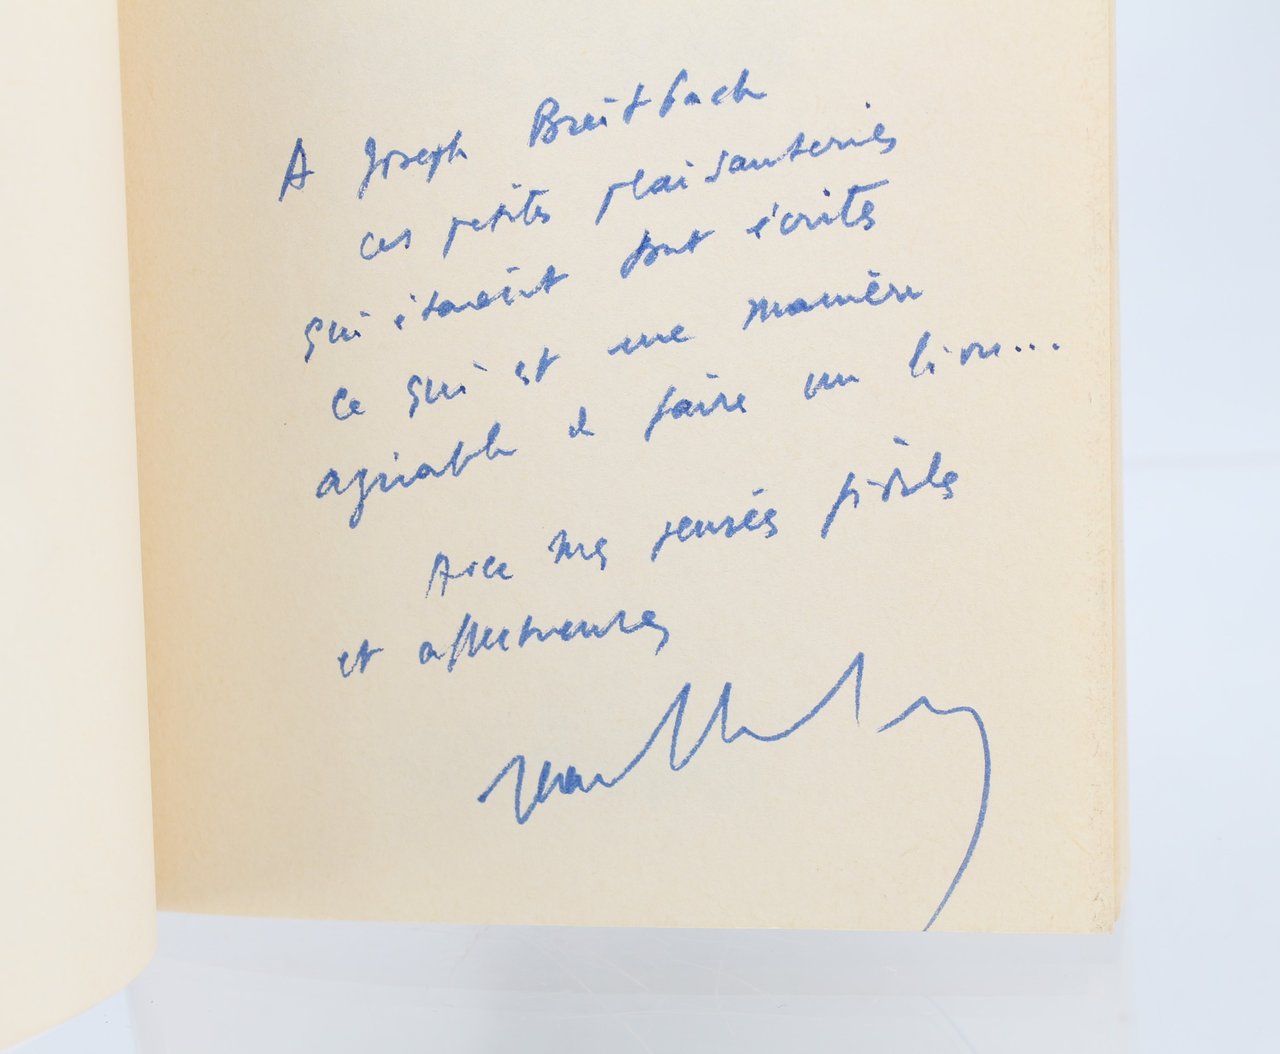 A Joseph Breitbach
ces petites plaisanteries
qui étaient tout écrites
ce qui est une manière
agréable de faire un livre...
Avec mes pensées fidèles
et affectueuses
Jean